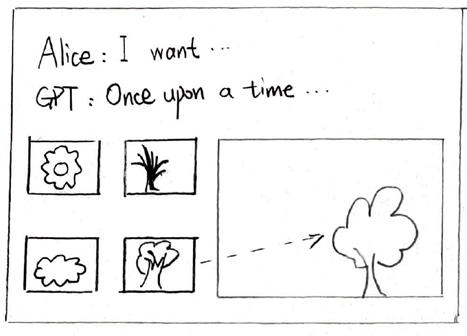 Alice: I want ...
GPT: Once upon a time ...